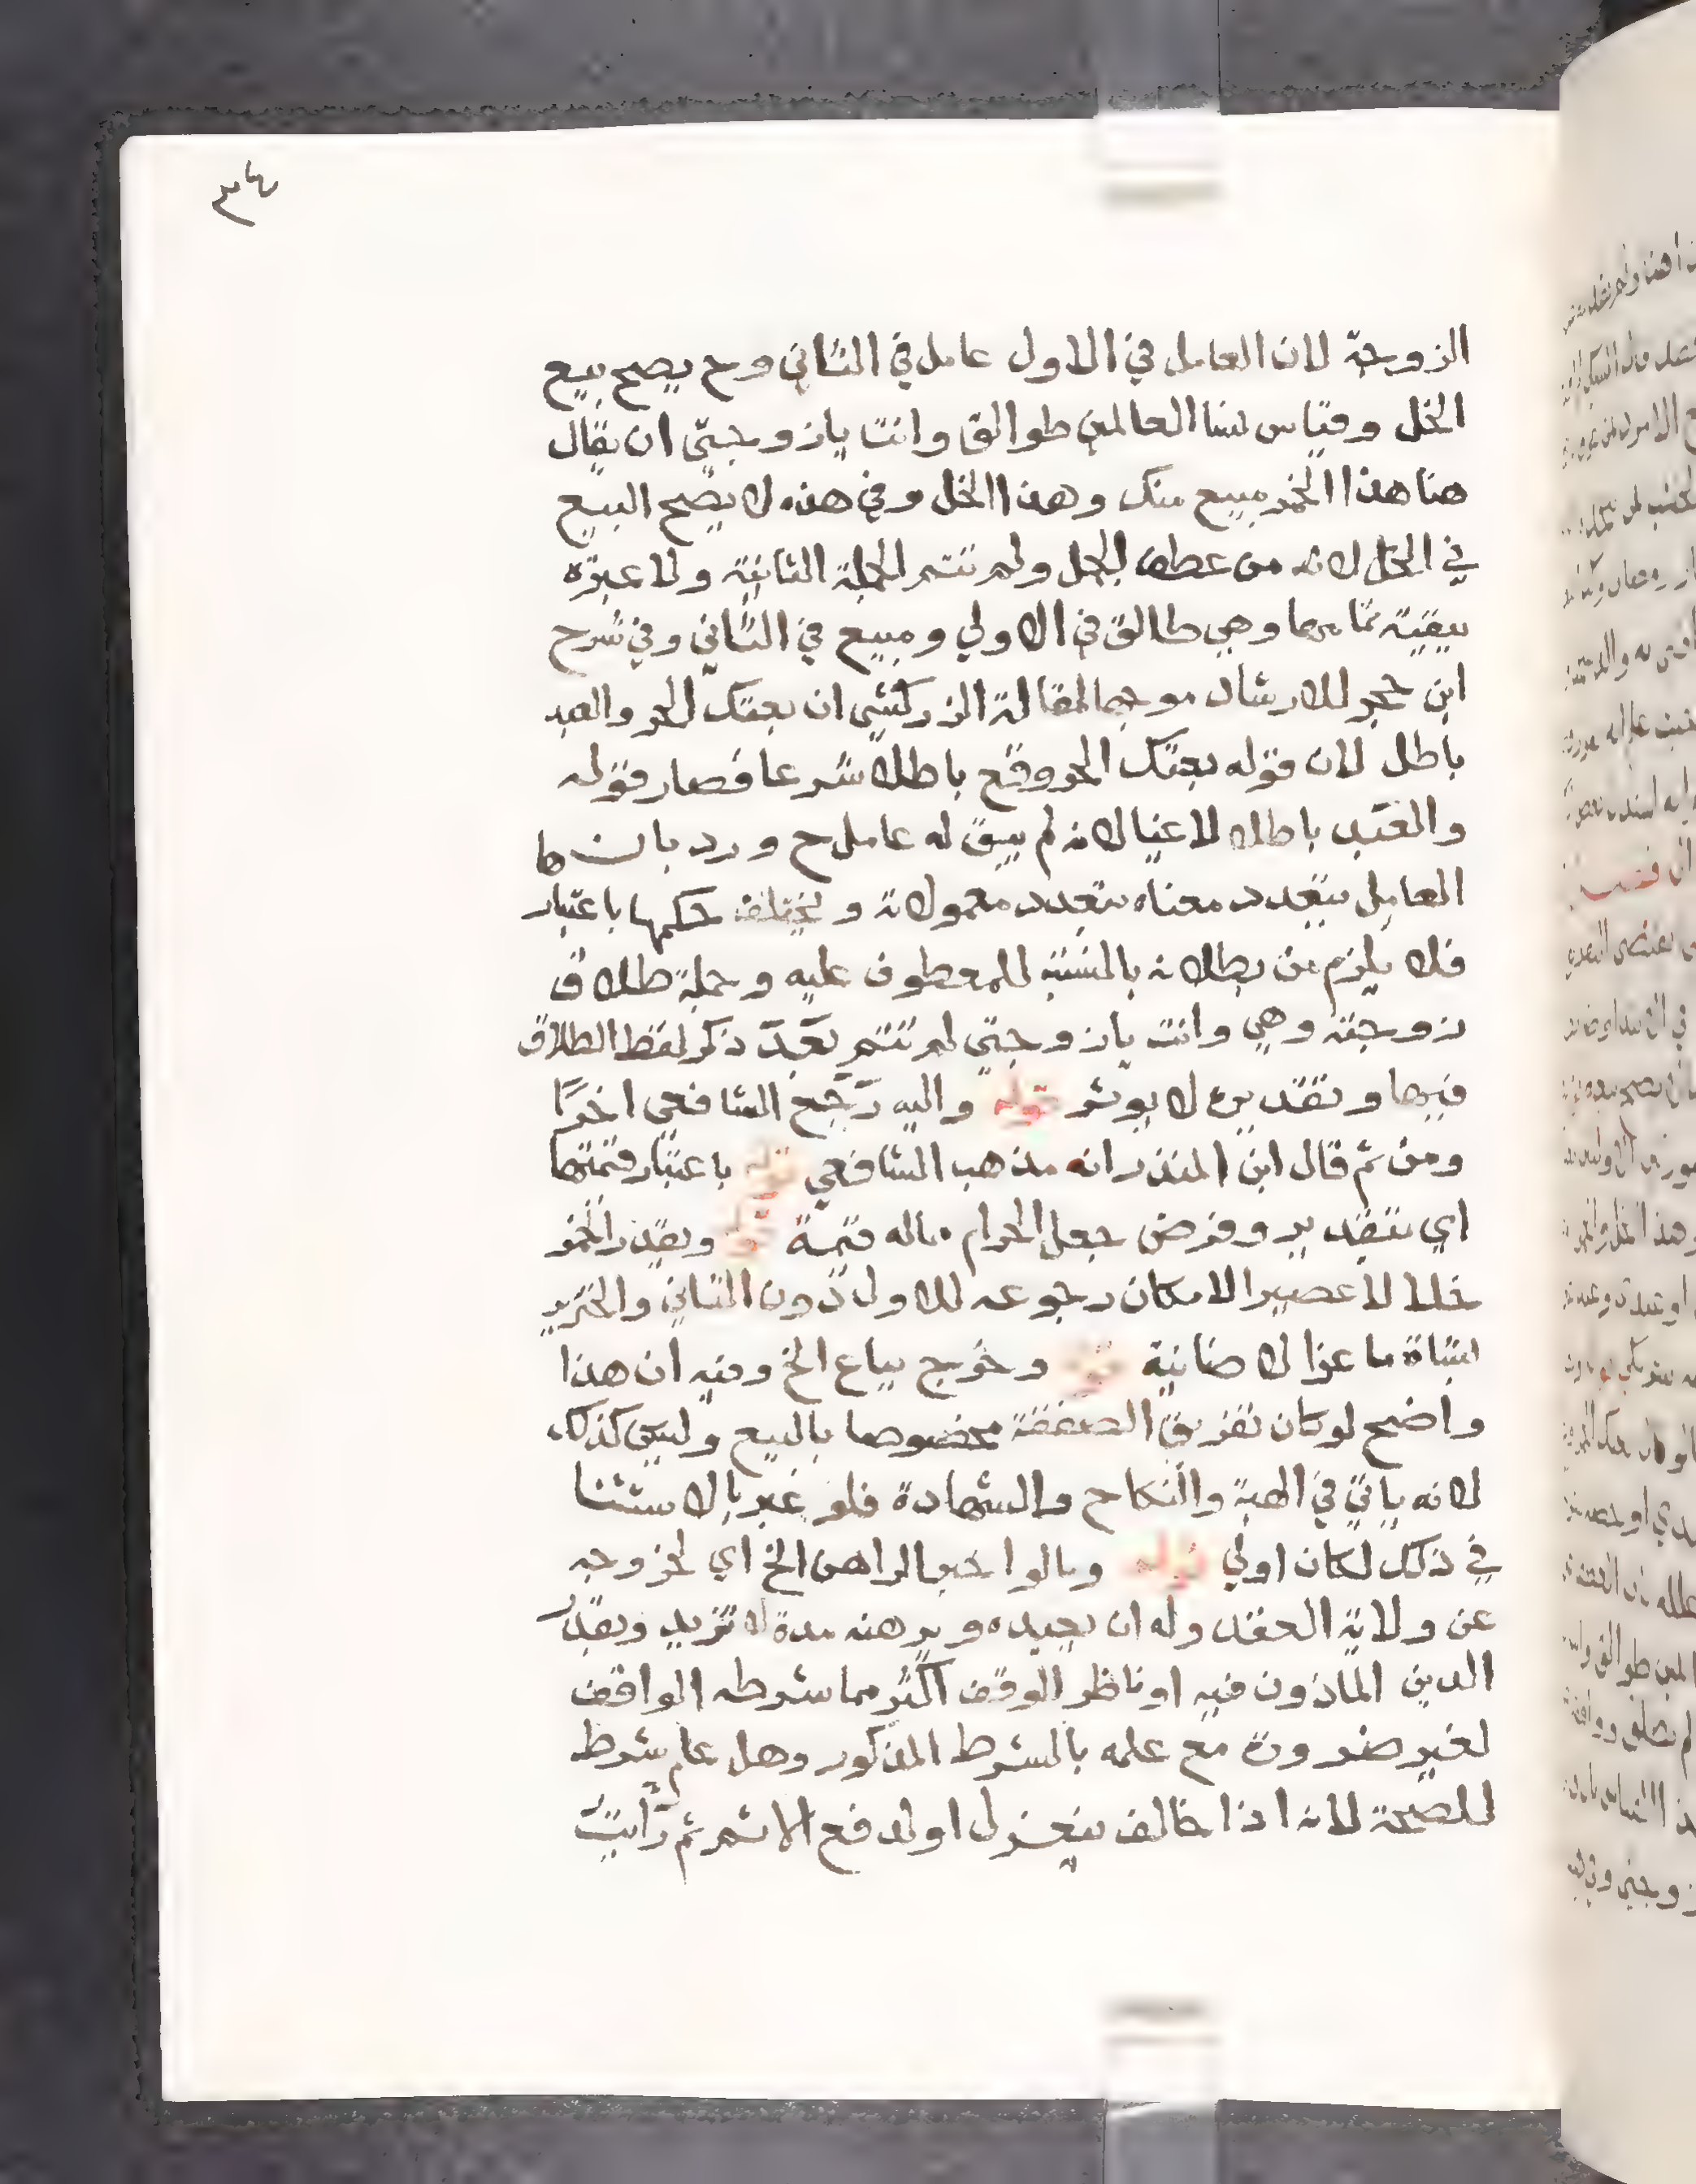 ٣٤
الزوجة لان العامل في الاول عامل في الثاني وح يصح بيع
الخل وقياس نسا العالمين طوالق وانت يا زوجتي ان يقال
هنا هذا الخمر مبيع منك وهذا الخل وفي هذه لا يصح البيع
في الخل لانه من عطف الجمل ولم تتم الجملة الثانية ولا عبرة
بنية تمامها وهي طالق في الاولي ومبيع في الثاني وفي شرح
ابن حجر للارشاد موجها لمقالة الزركشي ان بعتك الحر والعبد
باطل لان قوله بعتك الحر وقع باطلا شرعا فصار قوله
والعبد باطلا لاغيا لانه لم يبق له عامل ح ورد بان
العامل يتعدد معناه بتعدد معمولاته ويختلف حكمها باعتبار
فلا يلزم من بطلانه بالنسبة للمعطوف عليه وجملة طلاق
زوجته وهي وانت يا زوجتي لم تتم بعد ذكر لفظ الطلاق
فيها وتقديره لا يوثر قوله واليه رجع الشافعي اخرا
ومن ثم قال ابن المنذر انه مذهب الشافعي قوله باعتبار قيمتها
اي بتقدير وفرض جعل الحرام ماله قيمة قوله ويقدر الخمر
خلا لا عصيرا لامكان رجوعه للاول دون الثاني والخنزير
شاة ما عزا لا ضانية قوله وخرج بباع الخ وفيه ان هذا
واضح لو كان تفريق الصفقة مخصوصا بالبيع وليس كذلك
لانه ياتي في الهبة والنكاح والشهادة فلو عبر بالاستثنا
في ذلك لكان اولي قوله وبالوا خير الراهن الخ اي لخروجه
عن ولاية العقد وله ان يعيده ويرهنه مدة لا تزيد وبقدر
الدين الماذون فيه او ناظر الوقف اكثر مما شرطه الواقف
لغير ضرورة مع علمه بالشرط المذكور وهل علم شرط
للصحة لانه اذا خالف ينعزل او لدفع الاثم ثم رايت